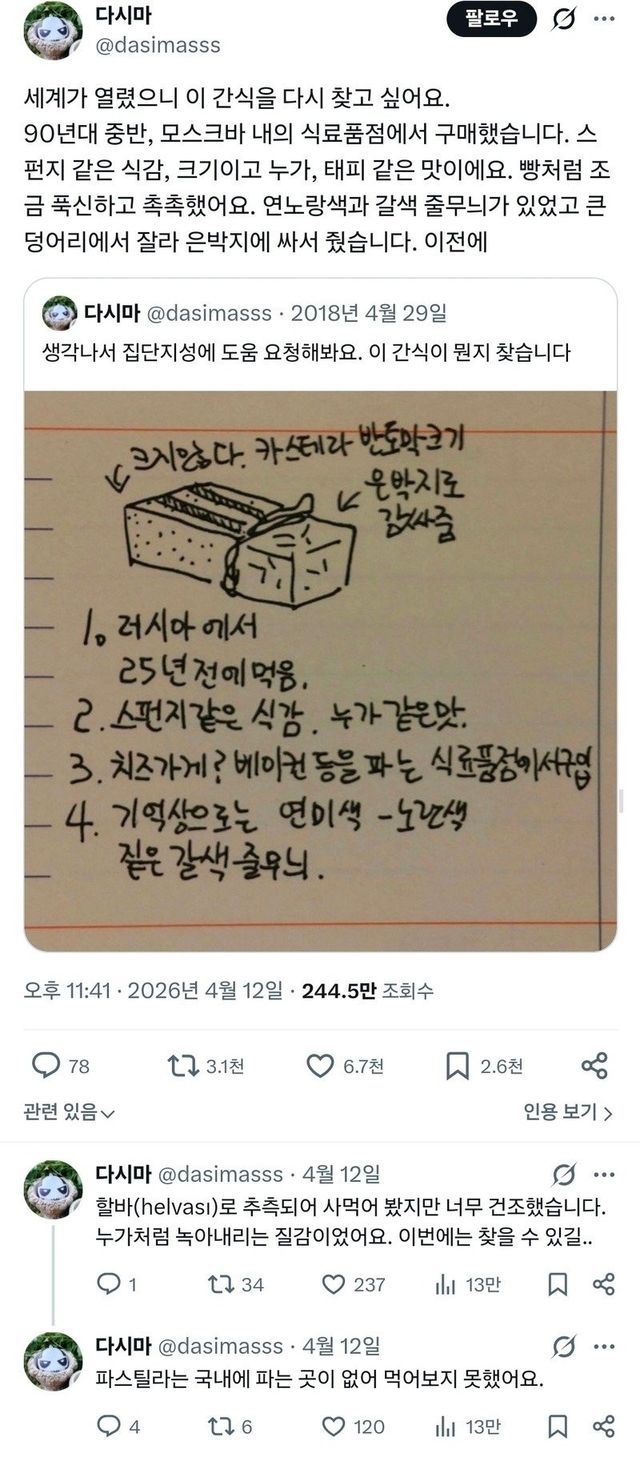 다시마
@dasimasss
팔로우
세계가 열렸으니 이 간식을 다시 찾고 싶어요.
90년대 중반, 모스크바 내의 식료품점에서 구매했습니다. 스
펀지 같은 식감, 크기이고 누가, 태피 같은 맛이에요. 빵처럼 조
금 푹신하고 촉촉했어요. 연노랑색과 갈색 줄무늬가 있었고 큰
덩어리에서 잘라 은박지에 싸서 줬습니다. 이전에
다시마 @dasimasss · 2018년 4월 29일
생각나서 집단지성에 도움 요청해봐요. 이 간식이 뭔지 찾습니다
크지않다. 카스테라 반토막크기
은박지로
감싸줌
1. 러시아에서
25년전에먹음.
2. 스펀지같은 식감. 누가같은맛.
3. 치즈가게? 베이컨 등을 파는 식료품점에서구입
4. 기억상으로는 연미색 - 노란색
짙은 갈색 줄무늬.
오후 11:41 · 2026년 4월 12일 · 244.5만 조회수
78 3.1천 6.7천 2.6천
관련 있음
인용 보기
다시마 @dasimasss · 4월 12일
할바(helvası)로 추측되어 사먹어 봤지만 너무 건조했습니다.
누가처럼 녹아내리는 질감이었어요. 이번에는 찾을 수 있길..
1 34 237 13만
다시마 @dasimasss · 4월 12일
파스틸라는 국내에 파는 곳이 없어 먹어보지 못했어요.
4 6 120 13만